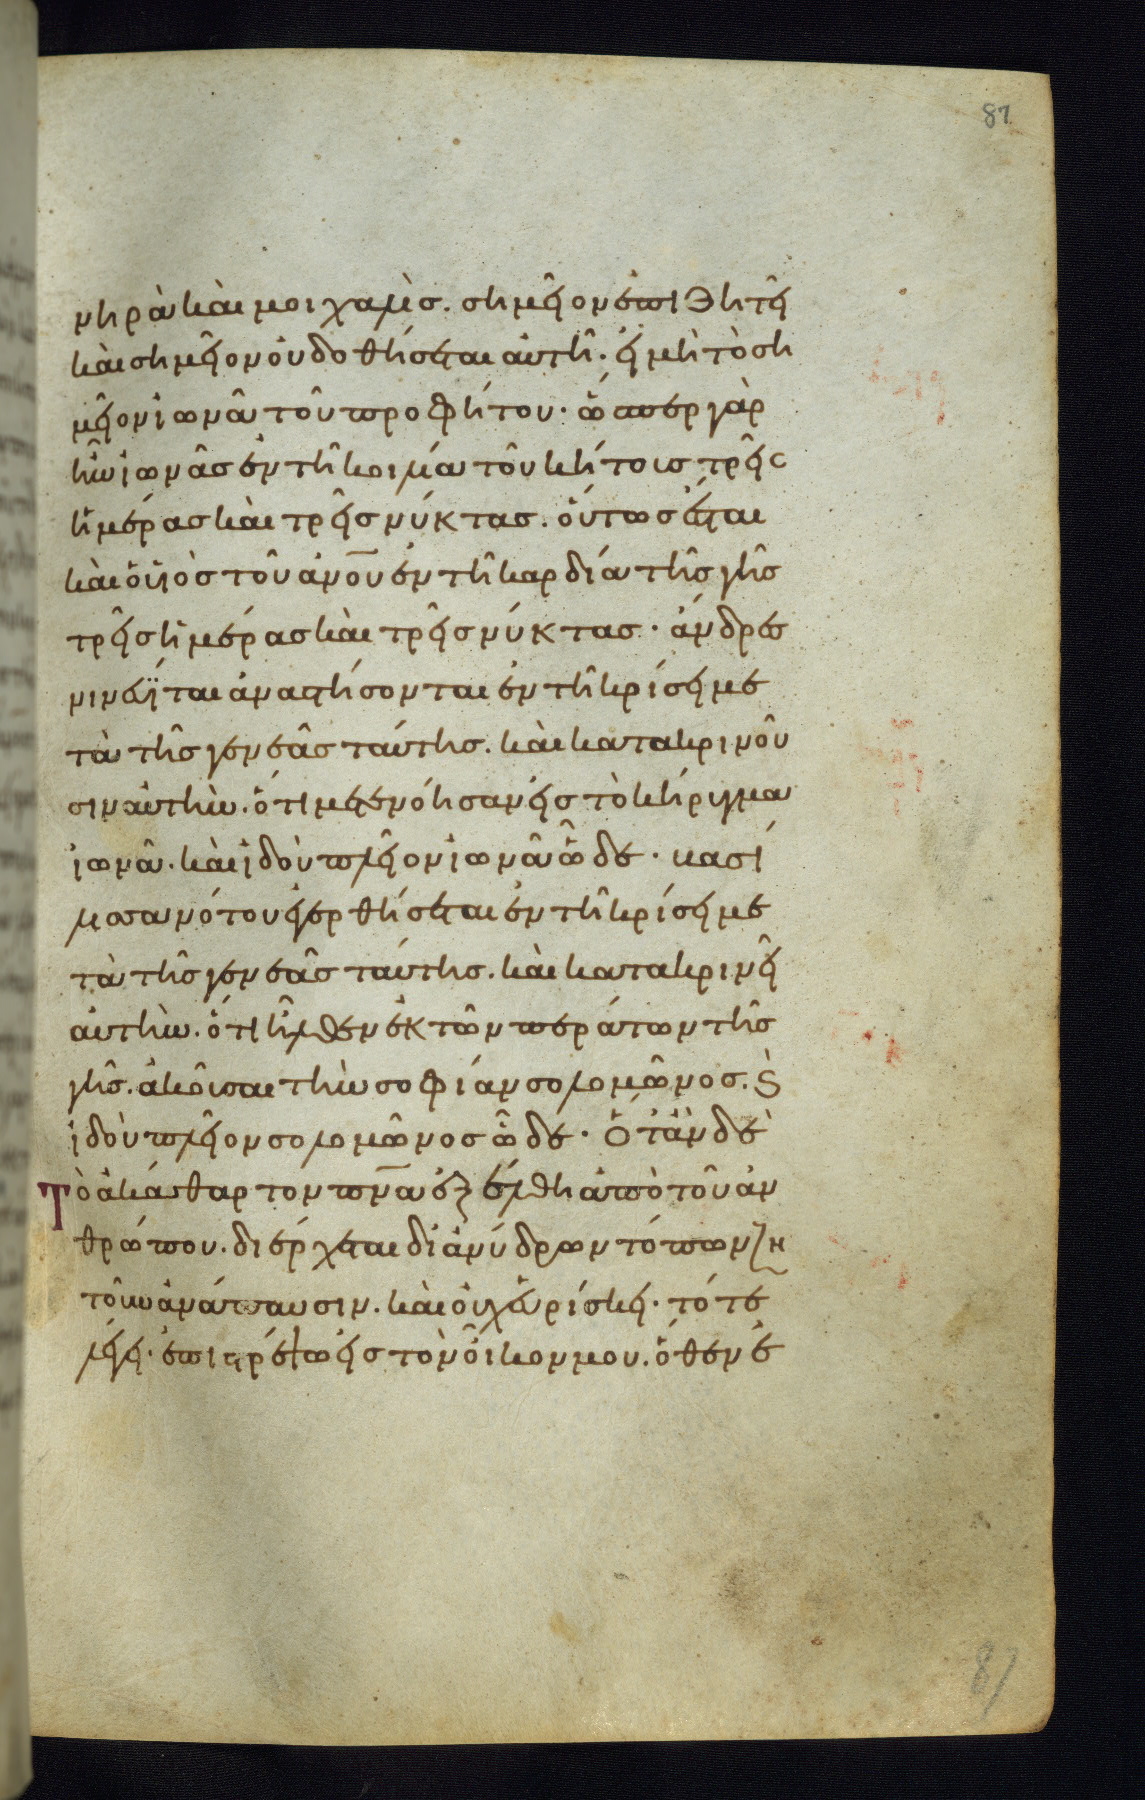 81
νηρὰ καὶ μοιχαλὶς. σημεῖον ἐπιζητεῖ
καὶ σημεῖον οὐ δοθήσεται αὐτῆ· εἰ μὴ τὸ ση
μεῖον ἰωνᾶ τοῦ προφήτου· ὥσπερ γὰρ
ἦν ἰωνᾶς ἐν τῆ κοιλία τοῦ κήτους τρεῖς
ἡμέρας καὶ τρεῖς νύκτας. οὕτως ἔσται
καὶ ὁ υἱὸς τοῦ ανου ἐν τῆ καρδία τῆς γῆς
τρεῖς ἡμέρας καὶ τρεῖς νύκτας· ἄνδρες
νινευΐται ἀναστήσονται ἐν τῆ κρίσει με
τὰ τῆς γενεᾶς ταύτης. καὶ κατακρινοῦ
σιν αὐτὴν. ὅτι μετενόησαν εἰς τὸ κήρυγμα
ἰωνᾶ. καὶ ἰδοὺ πλεῖον ἰωνᾶ ὧδε· βασί
λισσα νότου ἐγερθήσεται ἐν τῆ κρίσει με
τὰ τῆς γενεᾶς ταύτης. καὶ κατακρινεῖ
αὐτὴν. ὅτι ἦλθεν ἐκ τῶν περάτων τῆς
γῆς. ἀκοῦσαι τὴν σοφίαν σολομῶνος. ϗ
ἰδοὺ πλεῖον σολομῶνος ὧδε· Ὅταν δὲ
Τὸ ἀκάθαρτον πνα ἐξέλθη ἀπὸ τοῦ ἀν
θρώπου. διέρχεται δι ἀνύδρων τόπων ζη
τοῦν ἀνάπαυσιν. καὶ οὐχ εὑρίσκει· τότε
λέγει· ἐπιστρέψω εἰς τὸν οἶκον μου. ὅθεν ἐ
81